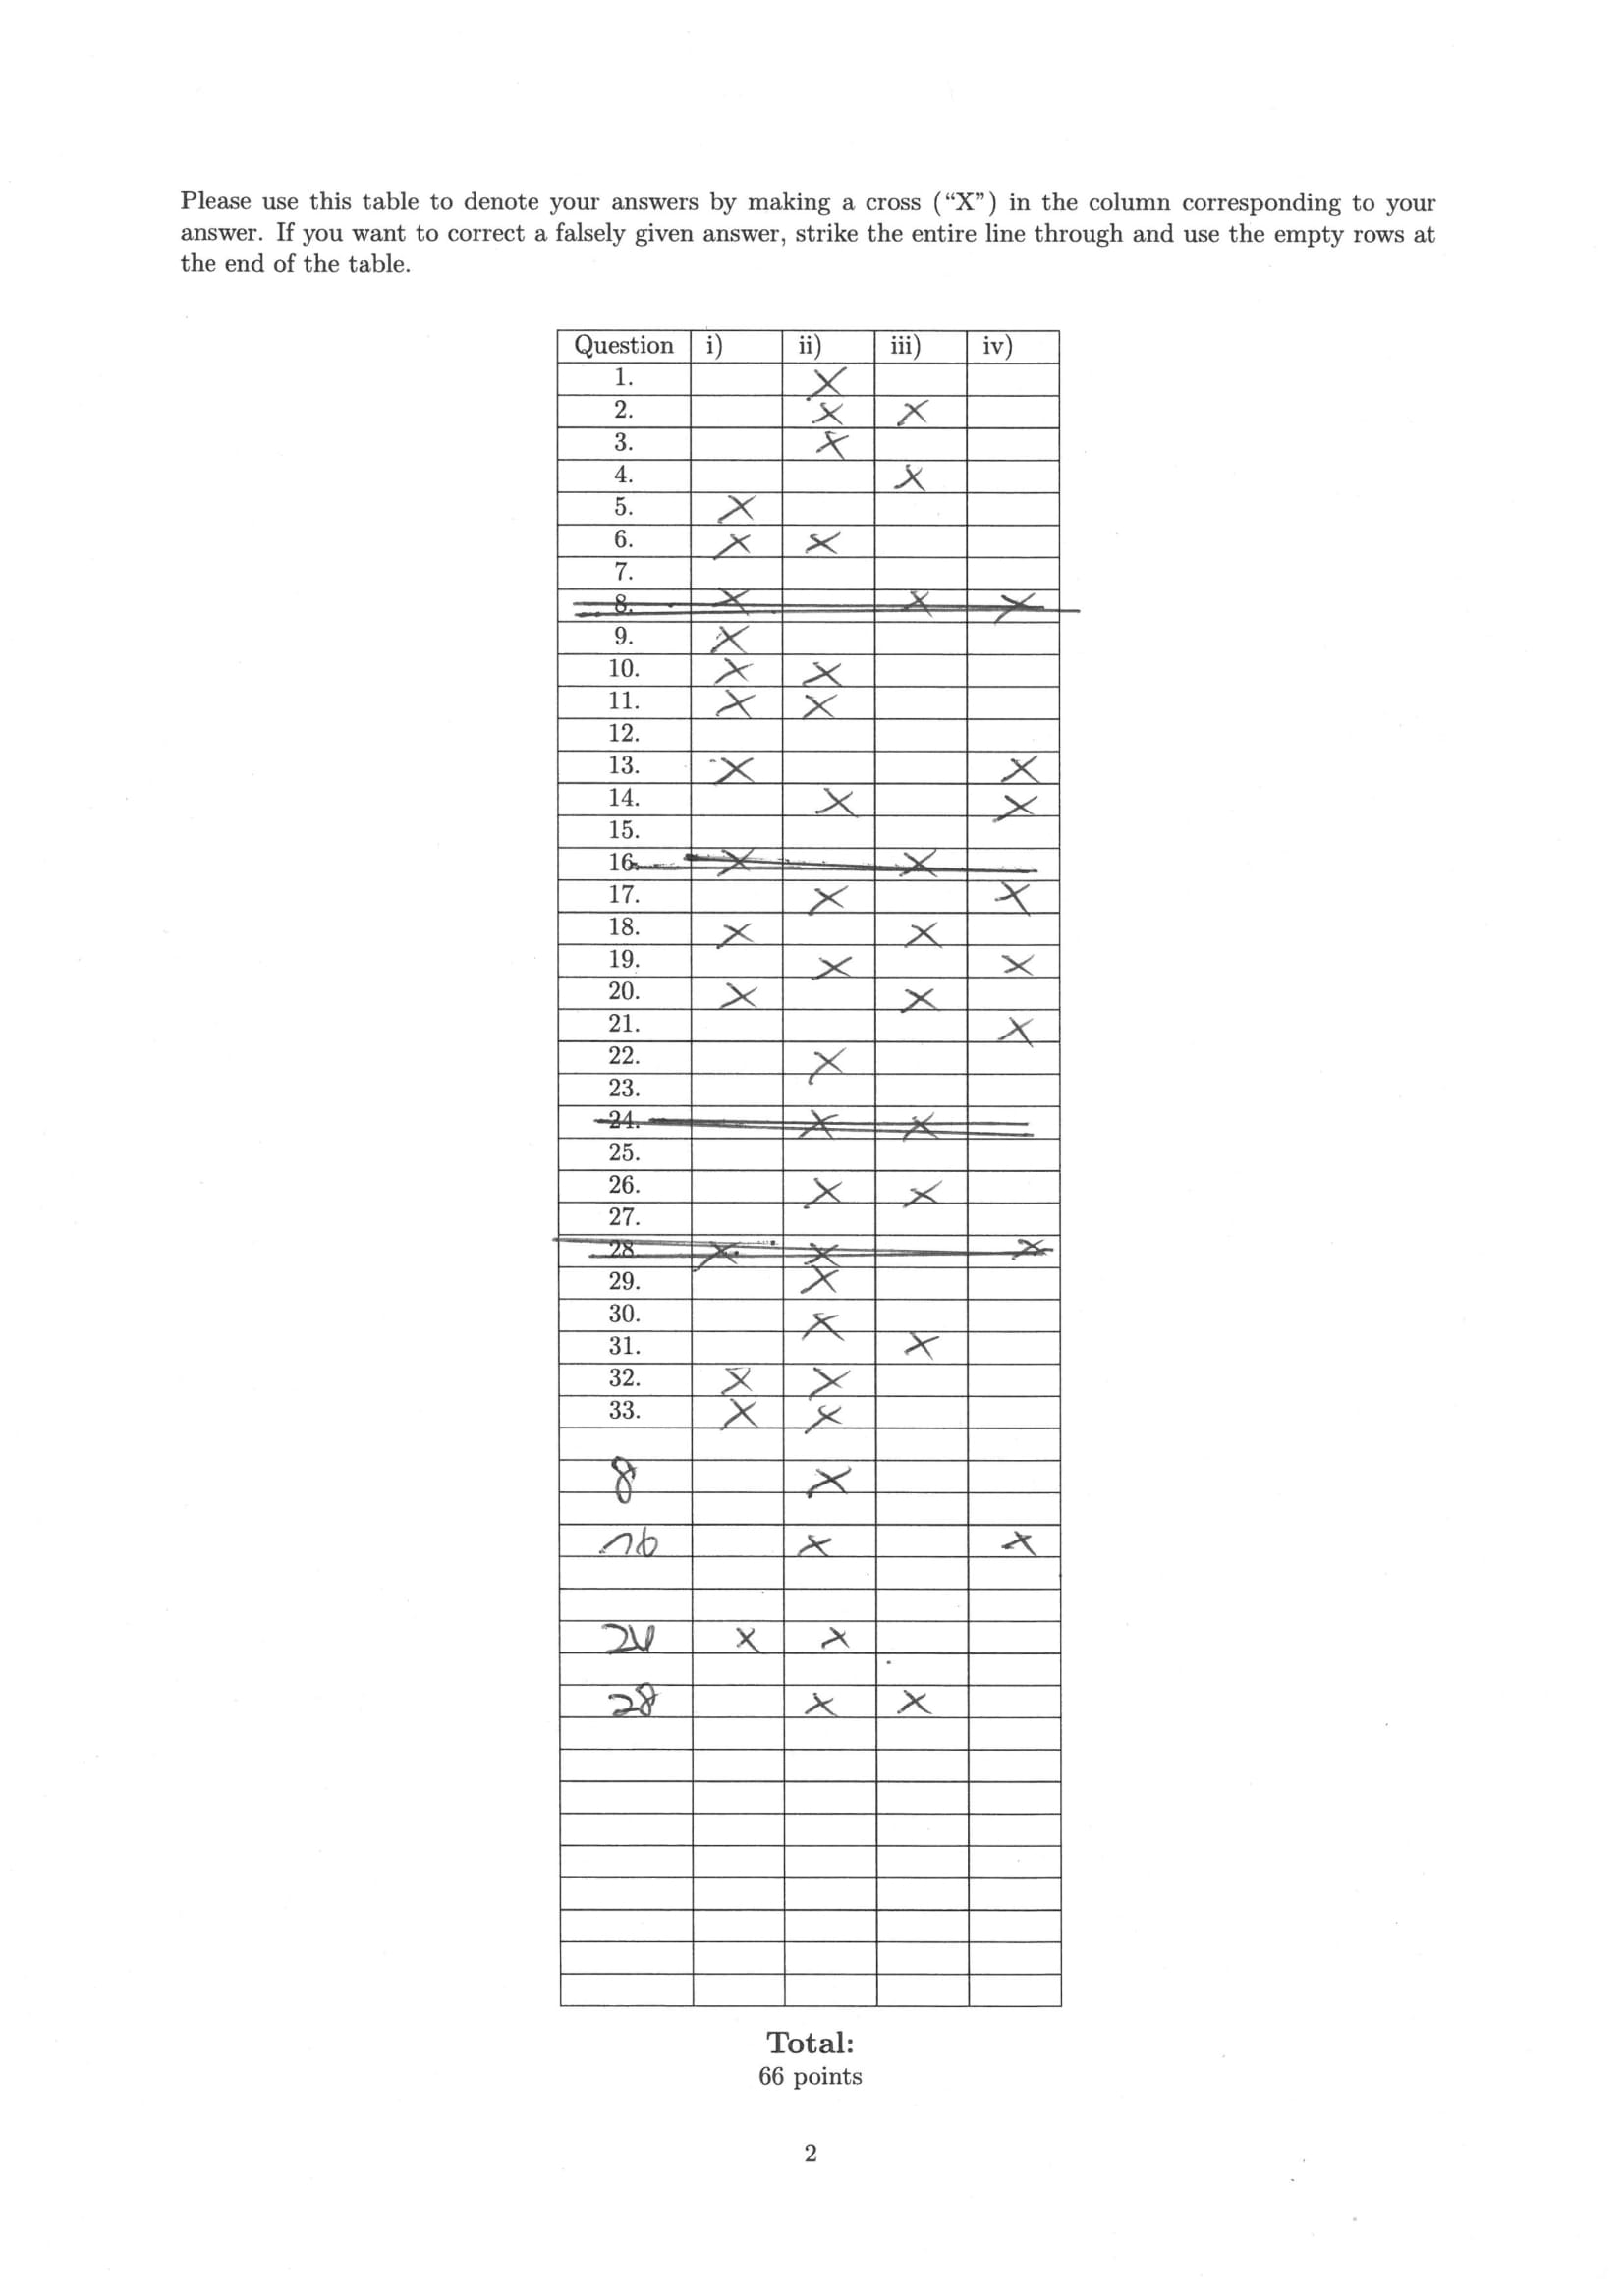 Please use this table to denote your answers by making a cross (“X”) in the column corresponding to your
answer. If you want to correct a falsely given answer, strike the entire line through and use the empty rows at
the end of the table.
Question i) ii) iii) iv)
1. X
2. X X
3. X
4. X
5. X
6. X X
7.
8. X X X
9. X
10. X X
11. X X
12.
13. X X
14. X X
15.
16. X X
17. X X
18. X X
19. X X
20. X X
21. X
22. X
23.
24. X X
25.
26. X X
27.
28 X X X
29. X
30. X
31. X
32. X X
33. X X
8 X
16 X X
24 X X
28 X X
Total:
66 points
2